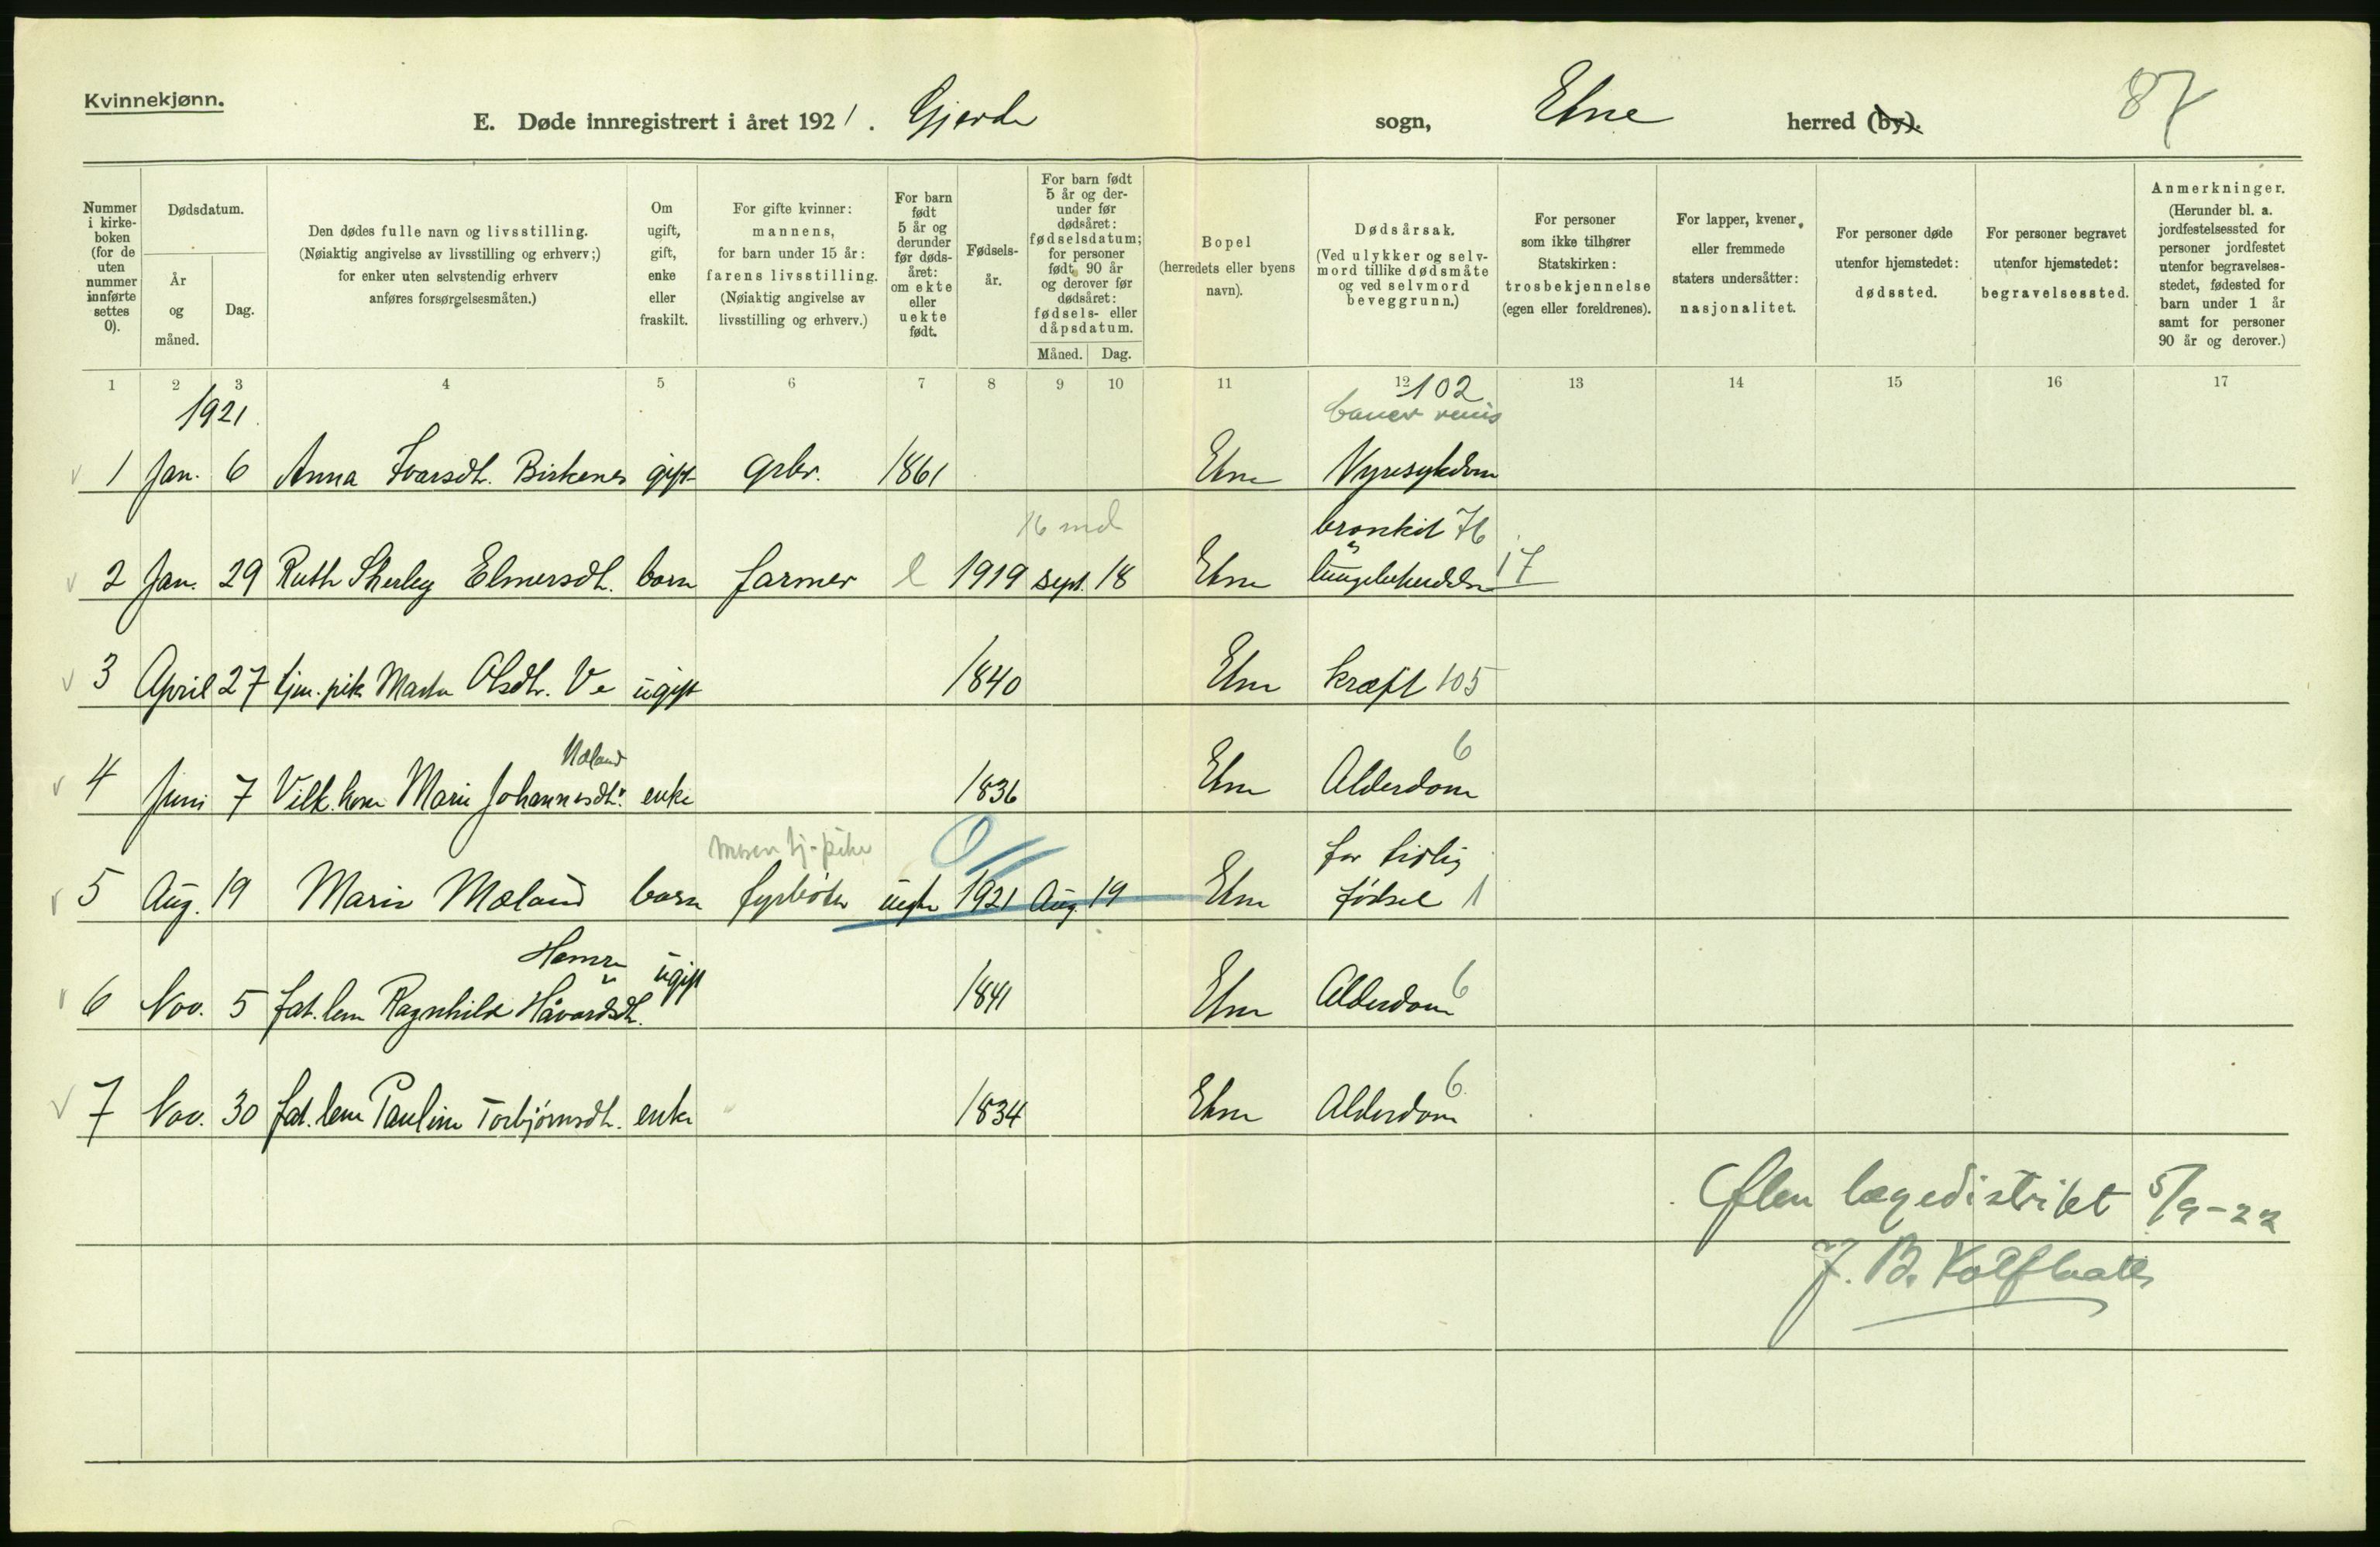 Kvinnekjønn.
E. Døde innregistrert i året 1921. Gjerde sogn, Etne herred (by).
87
Nummer i kirkeboken (for de uten nummer innførte settes 0).
Dødsdatum.
År og måned.
Dag.
Den dødes fulle navn og livsstilling.
(Nøiaktig angivelse av livsstilling og erhverv;)
for enker uten selvstendig erhverv
anføres forsørgelsesmåten.)
Om ugift, gift, enke eller fraskilt.
For gifte kvinner: mannens, for barn under 15 år: farens livsstilling. (Nøiaktig angivelse av livsstilling og erhverv.)
For barn født 5 år og derunder før dødsåret: om ekte eller uekte født.
Fødselsår.
For barn født 5 år og derunder før dødsåret: fødselsdatum; for personer født 90 år og derover før dødsåret: fødsels- eller dåpsdatum.
Måned. Dag.
Bopel (herredets eller byens navn).
Dødsårsak. (Ved ulykker og selvmord tillike dødsmåte og ved selvmord beveggrunn.)
For personer som ikke tilhører Statskirken: trosbekjennelse (egen eller foreldrenes).
For lapper, kvener, eller fremmede staters undersåtter: nasjonalitet.
For personer døde utenfor hjemstedet: dødssted.
For personer begravet utenfor hjemstedet: begravelsessted.
Anmerkninger. (Herunder bl. a. jordfestelsessted for personer jordfestet utenfor begravelsesstedet, fødested for barn under 1 år samt for personer 90 år og derover.)
1 2 3 4 5 6 7 8 9 10 11 12 13 14 15 16 17
1921.
102
cancer renis
1 Jan. 6 Anna Ivarsdt. Birkenes gift grbr. 1861 Etne Nyresykdom
16 md
bronkit 76
2 Jan. 29 Ruth Sherley Elmersdt. barn farmer e 1919 sept. 18 Etne lungebetendelse 17
3 April 27 tjen. pike Marta Olsdt. Ve ugift 1840 Etne kræft 105
Mæland
6
4 Juni 7 Vilk. kone Marie Johannesdt. enke 1836 Etne Alderdom
moren tj-pike
0
for tidlig
5 Aug. 19 Marie Mæland barn fyrbøter uegte 1921 Aug. 19 Etne fødsel 1
Hamre
6 Nov. 5 fat. lem Ragnhild Håvardsdt. ugift 1841 Etne Alderdom 6
7 Nov. 30 fat. lem Pauline Torbjørnsdt. enke 1834 Etne Alderdom 6
lægedistrikt 5/9-22
J. B. Kalfhatle